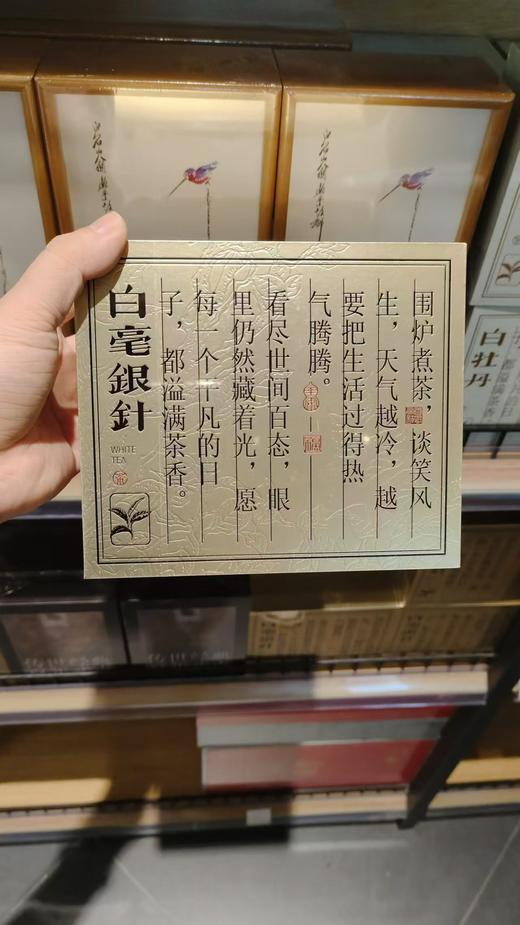 围炉煮茶，谈笑风
生，天气越冷，越
要把生活过得热
气腾腾。
看尽世间百态，眼
里仍然藏着光，愿
每一个平凡的日
子，都溢满茶香。
白毫銀針
WHITE
TEA
茶
白牡丹